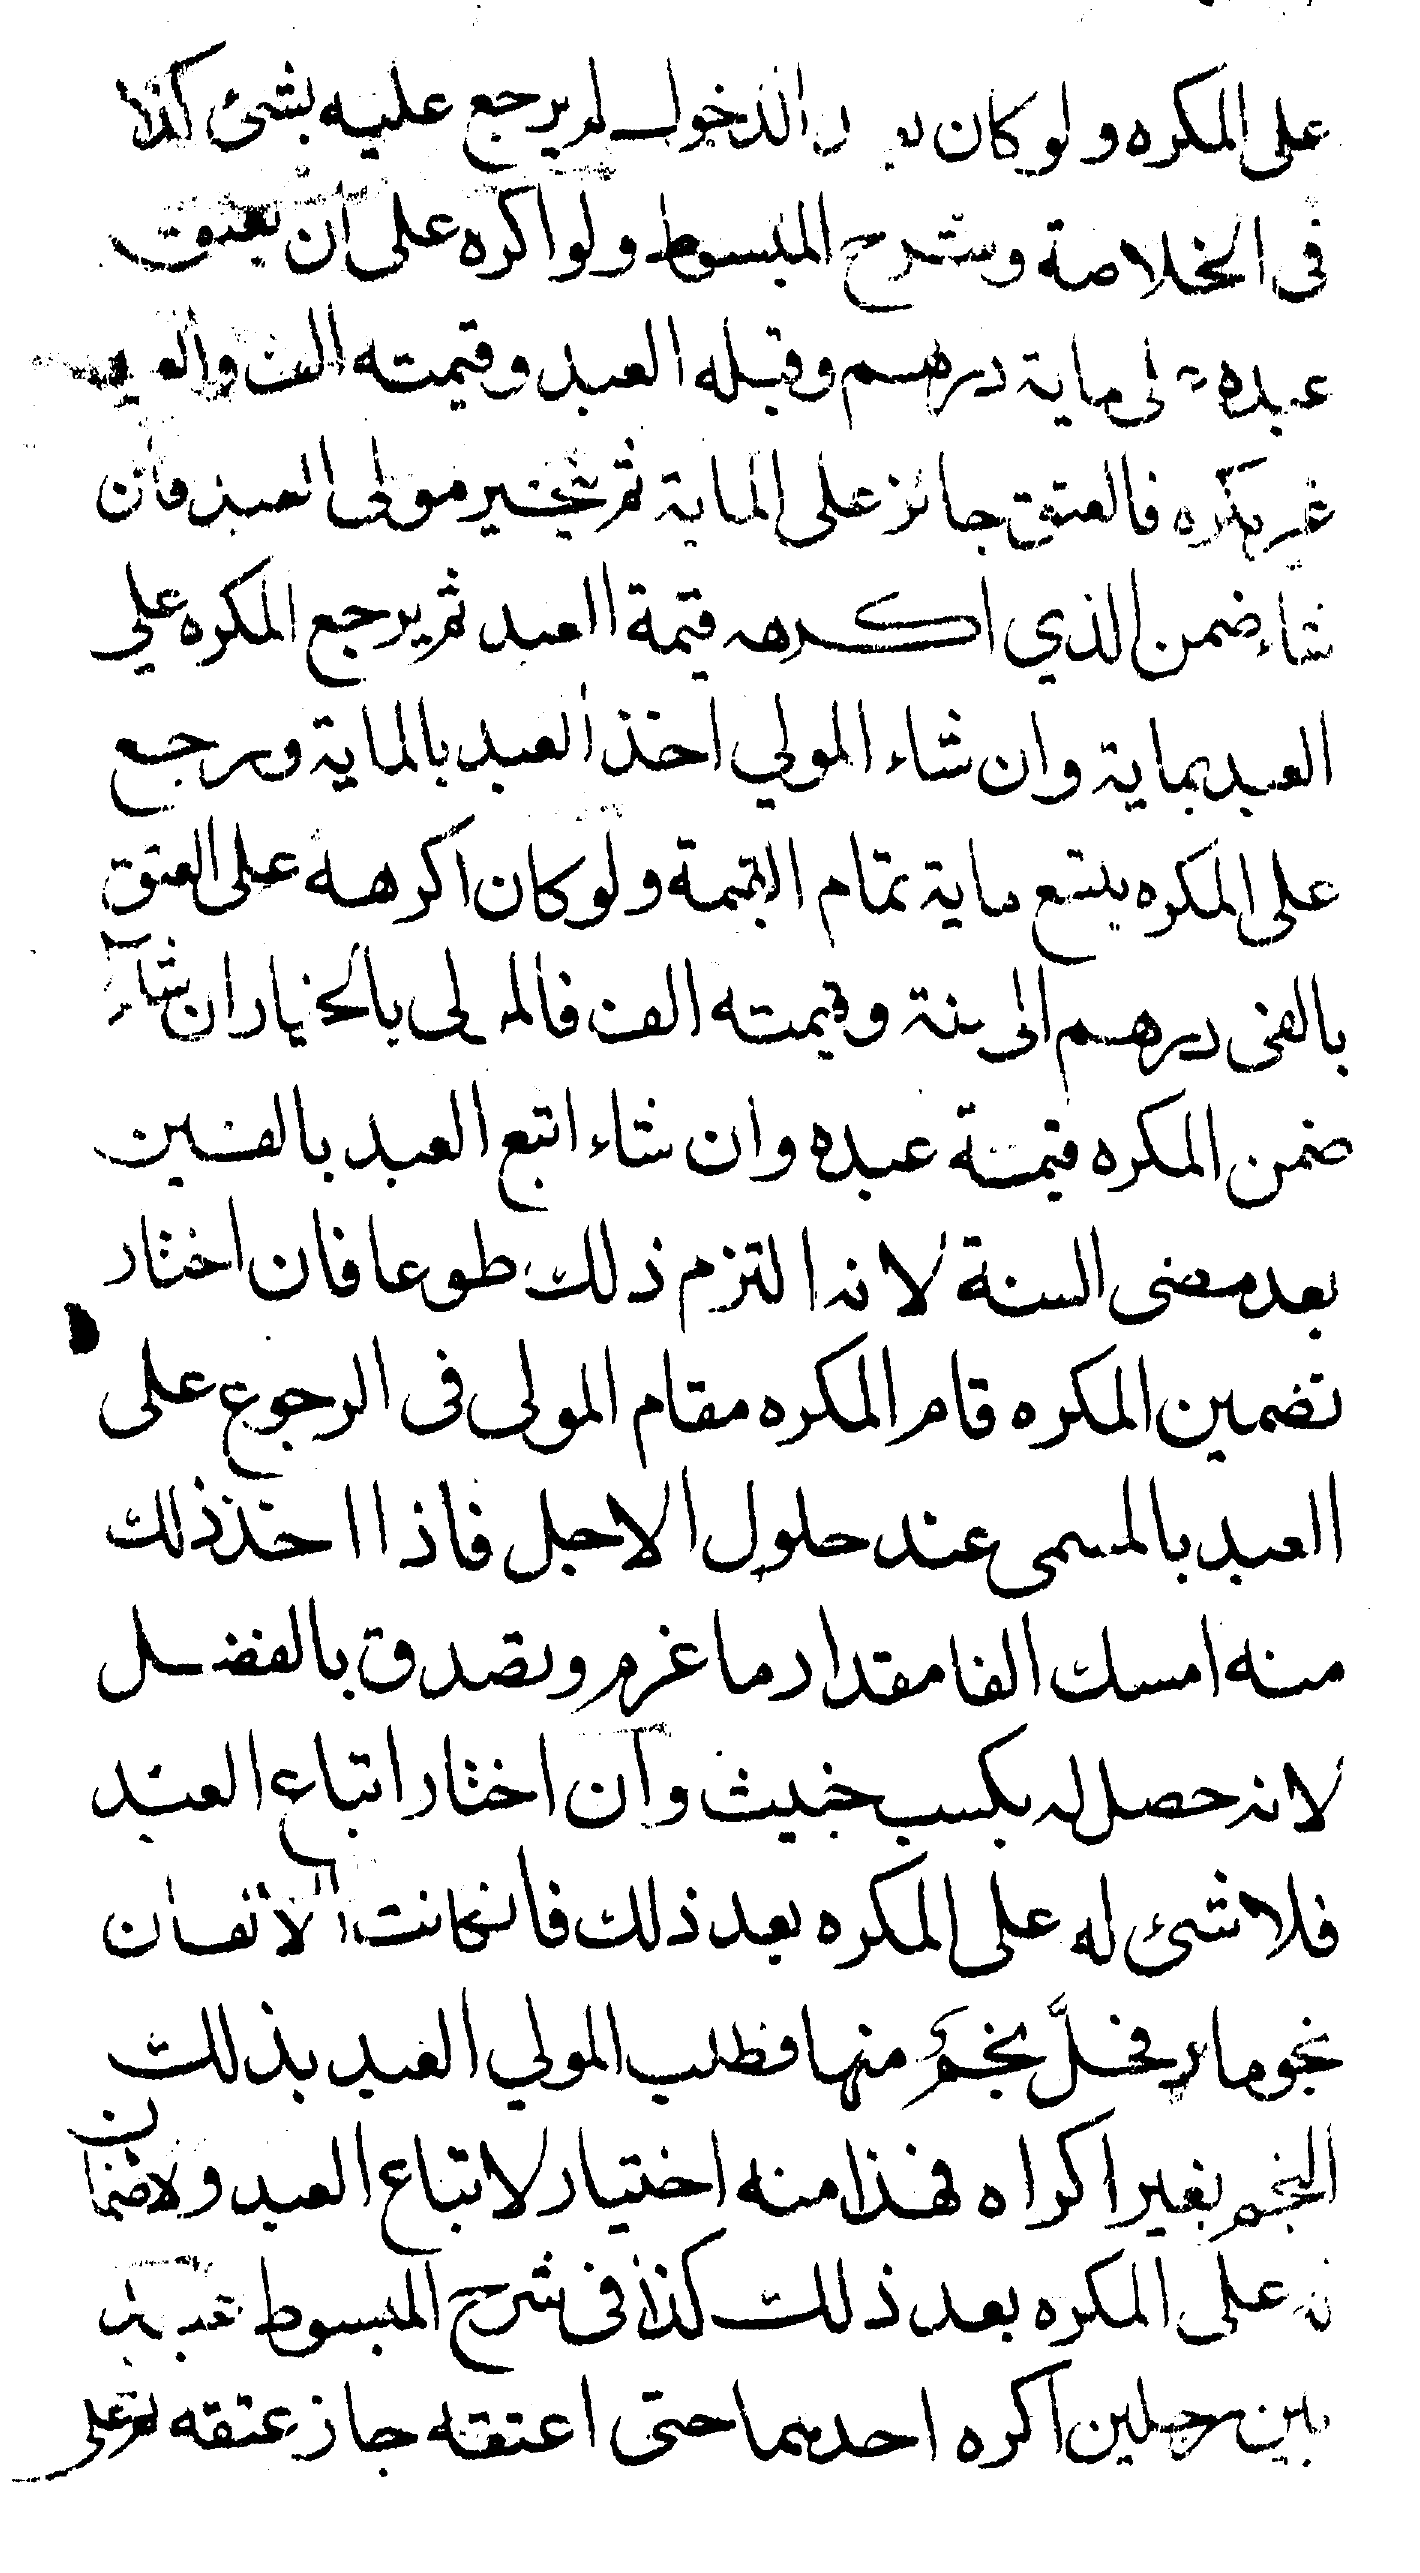 على المكره ولو كان بعد الدخول لم يرجع عليه بشئ كذا
فى الخلاصة وشرح المبسوط ولو اكره على ان يعتق
عبده على ماية درهم وقبله العبد وقيمته الف والعبد
غير مكره فالعتق جائز على الماية ثم يخير مولى العبد فان
شاء ضمن الذي اكرهه قيمة العبد ثم يرجع المكره علي
العبد بماية وان شاء المولي اخذ العبد بالماية ورجع
على المكره بتسع ماية تمام القيمة ولو كان اكرهه على العتق
بالفى درهم الى سنة وقيمته الف فالمولى بالخيار ان شاء
ضمن المكره قيمة عبده وان شاء اتبع العبد بالفين
بعد مضى السنة لانه التزم ذلك طوعا فان اختار
تضمين المكره قام المكره مقام المولى فى الرجوع على
العبد بالمسمى عند حلول الاجل فاذا اخذ ذلك
منه امسك الفا مقدار ما غرم وتصدق بالفضل
لانه حصل له بكسب خبيث وان اختار اتباع العبد
فلا شئ له على المكره بعد ذلك فان كانت الالفان
نجوما فحل نجم منها فطلب المولي العبد بذلك
النجم بغير اكراه فهذا منه اختيار لاتباع العبد ولا ضمان
له على المكره بعد ذلك كذا فى شرح المبسوط عبد
بين رجلين اكره احدهما حتى اعتقه جاز عتقه ثم على